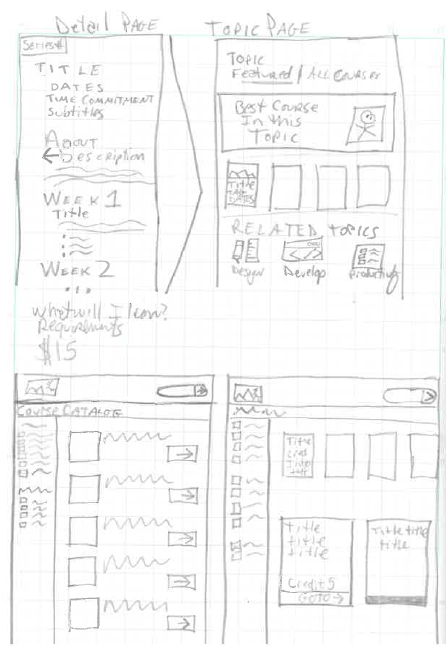 Detail PAGE
Series#
TITLE
DATES
TIME COMMITMENT
Subtitles
About
Description
WEEK 1
Title
WEEK 2
What will I learn?
Requirements
$15
TOPIC PAGE
TOPIC
Featured / ALL Courses
Best Course
In this
Topic
Title
DATES
RELATED TOPICS
Design
Develop
COURSE CATALOG
Title
title
title
title
Credit 5
GOTO →
Title title
title